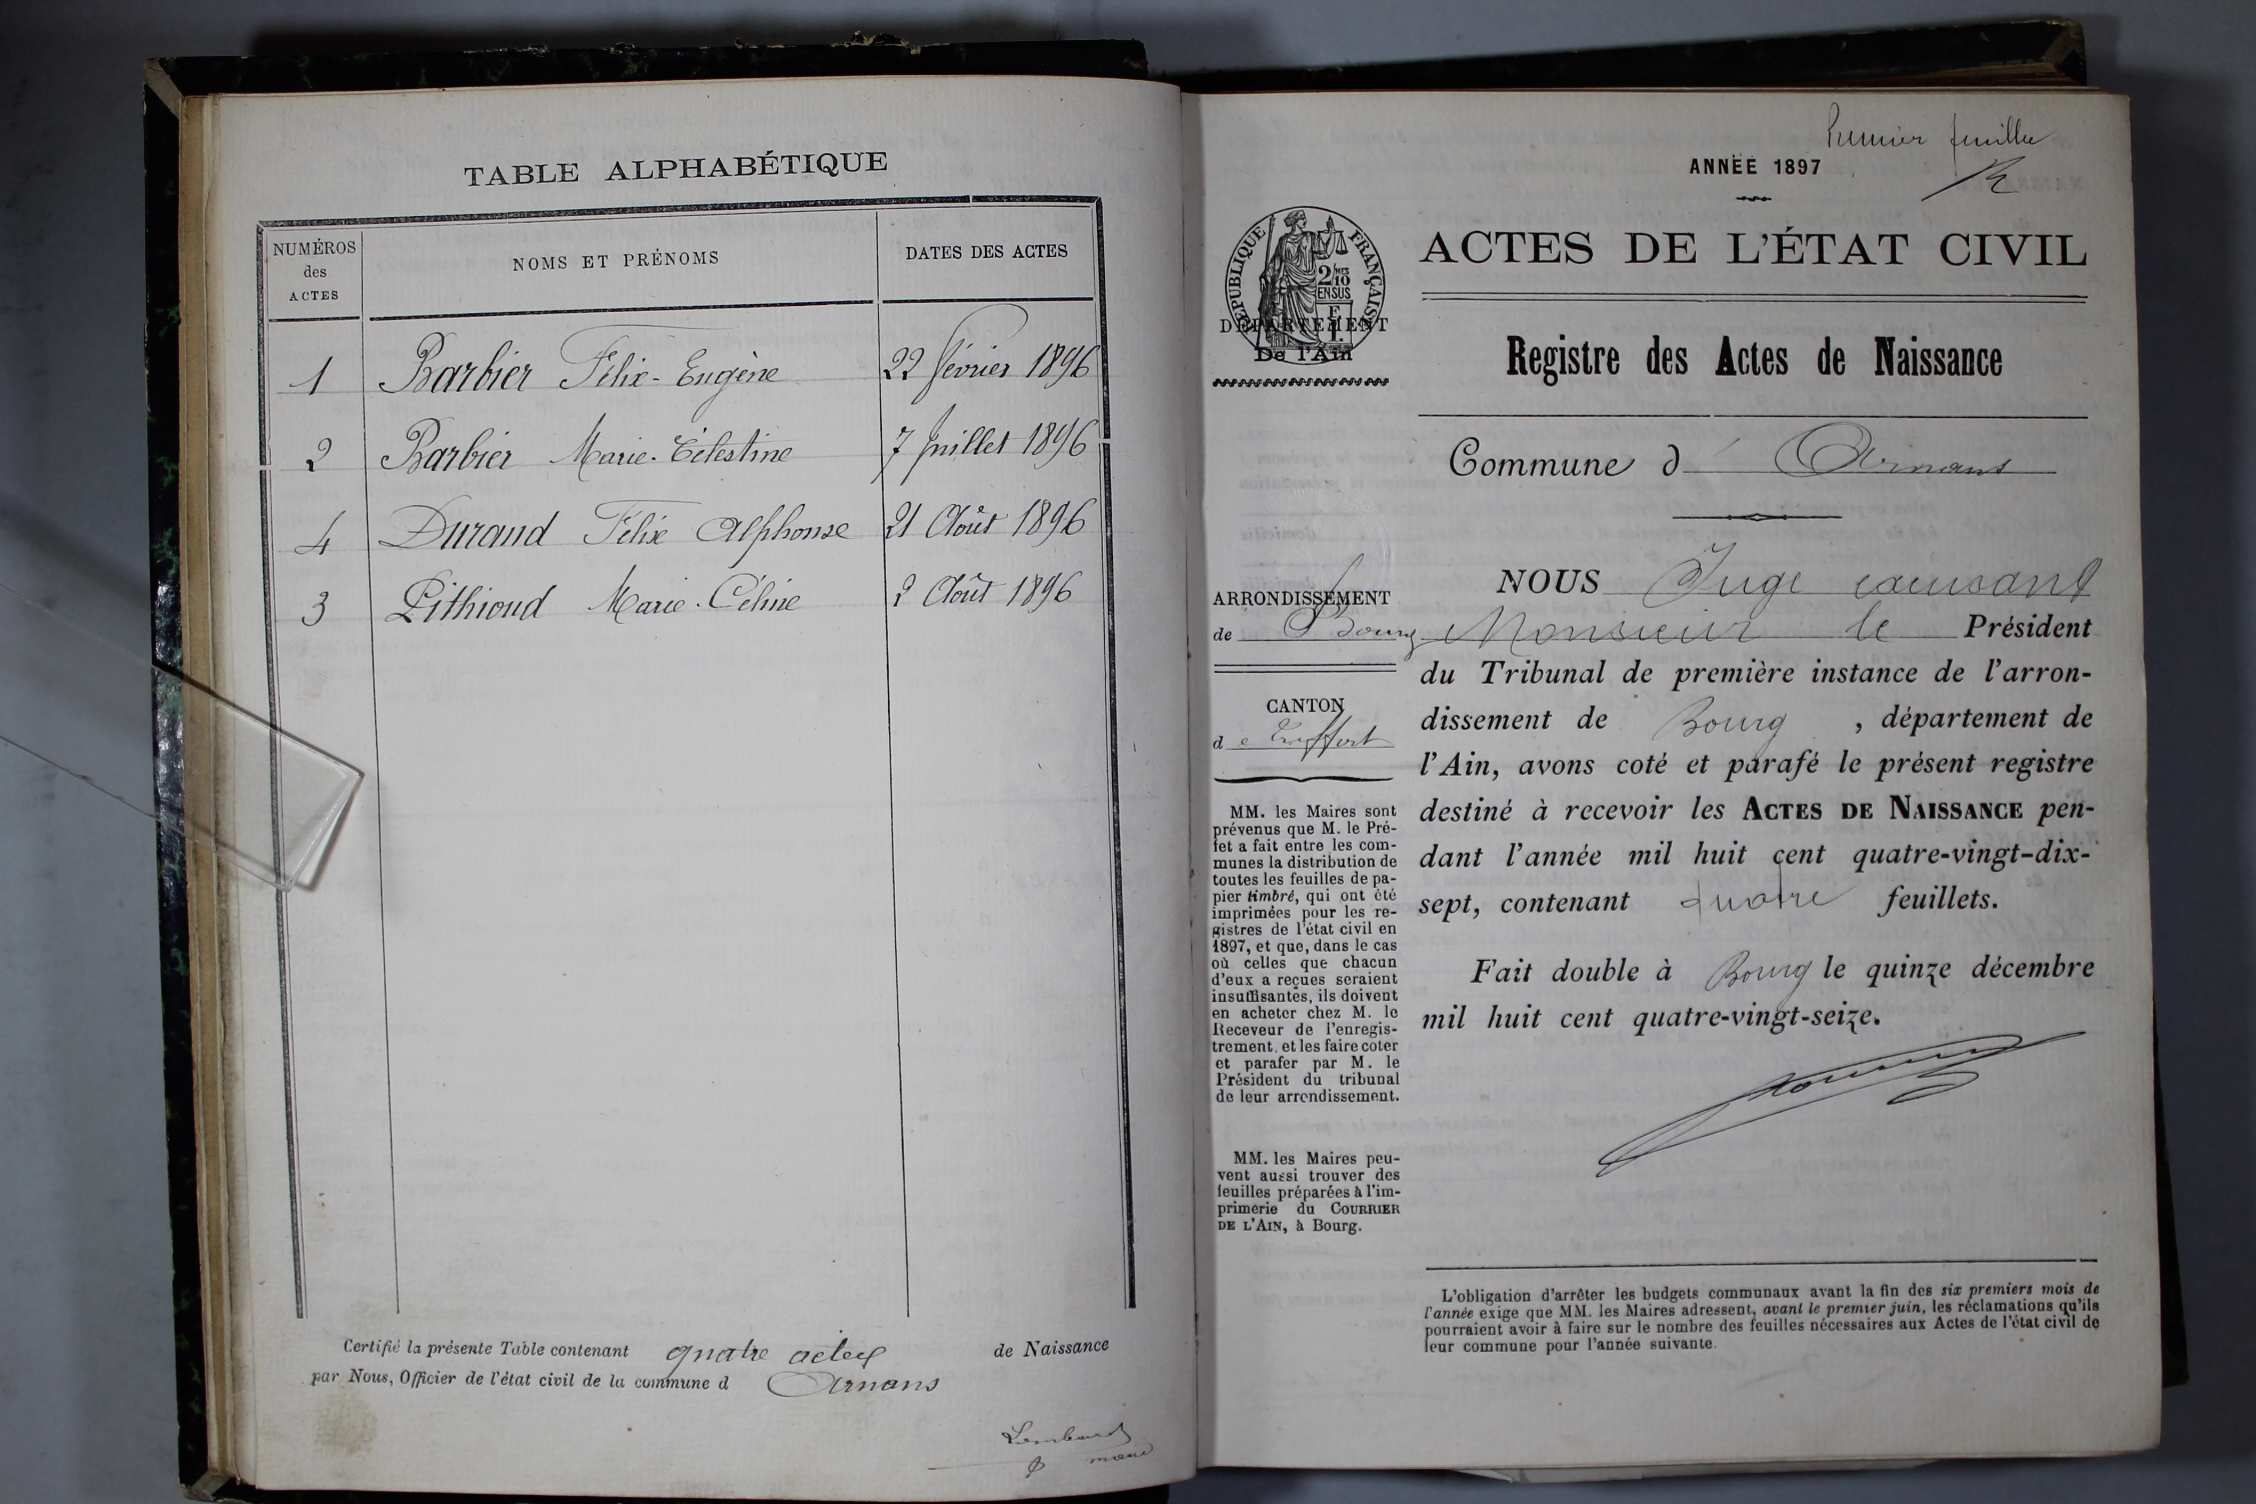 TABLE ALPHABÉTIQUE
NUMÉROS
des
ACTES
NOMS ET PRÉNOMS
DATES DES ACTES
1 Barbier Félix-Eugène 22 février 1896
2 Barbier Marie-Célestine 7 Juillet 1896
4 Durand Félix Alphonse 21 Août 1896
3 Pithioud Marie-Céline 2 Août 1896
Certifié la présente Table contenant quatre actes de Naissance
par Nous, Officier de l'état civil de la commune d Arnans
Lombard
maire
Premier feuillet
ANNÉE 1897
RÉPUBLIQUE FRANÇAISE
2/10
EN SUS
DÉPARTEMENT
De l'Ain
ACTES DE L'ÉTAT CIVIL
Registre des Actes de Naissance
Commune d'Arnans
ARRONDISSEMENT
de Bourg
CANTON
de Treffort
MM. les Maires sont
prévenus que M. le Pré-
fet a fait entre les com-
munes la distribution de
toutes les feuilles de pa-
pier timbré, qui ont été
imprimées pour les re-
gistres de l'état civil en
1897, et que, dans le cas
où celles que chacun
d'eux a reçues seraient
insuffisantes, ils doivent
en acheter chez M. le
Receveur de l'enregis-
trement, et les faire coter
et parafer par M. le
Président du tribunal
de leur arrondissement.
MM. les Maires peu-
vent aussi trouver des
feuilles préparées à l'im-
primerie du COURRIER
DE L'AIN, à Bourg.
NOUS Juge
Monsieur le Président
du Tribunal de première instance de l'arron-
dissement de Bourg, département de
l'Ain, avons coté et parafé le présent registre
destiné à recevoir les ACTES DE NAISSANCE pen-
dant l'année mil huit cent quatre-vingt-dix-
sept, contenant quatre feuillets.
Fait double à Bourg le quinze décembre
mil huit cent quatre-vingt-seize.
L'obligation d'arrêter les budgets communaux avant la fin des six premiers mois de
l'année exige que MM. les Maires adressent, avant le premier juin, les réclamations qu'ils
pourraient avoir à faire sur le nombre des feuilles nécessaires aux Actes de l'état civil de
leur commune pour l'année suivante.